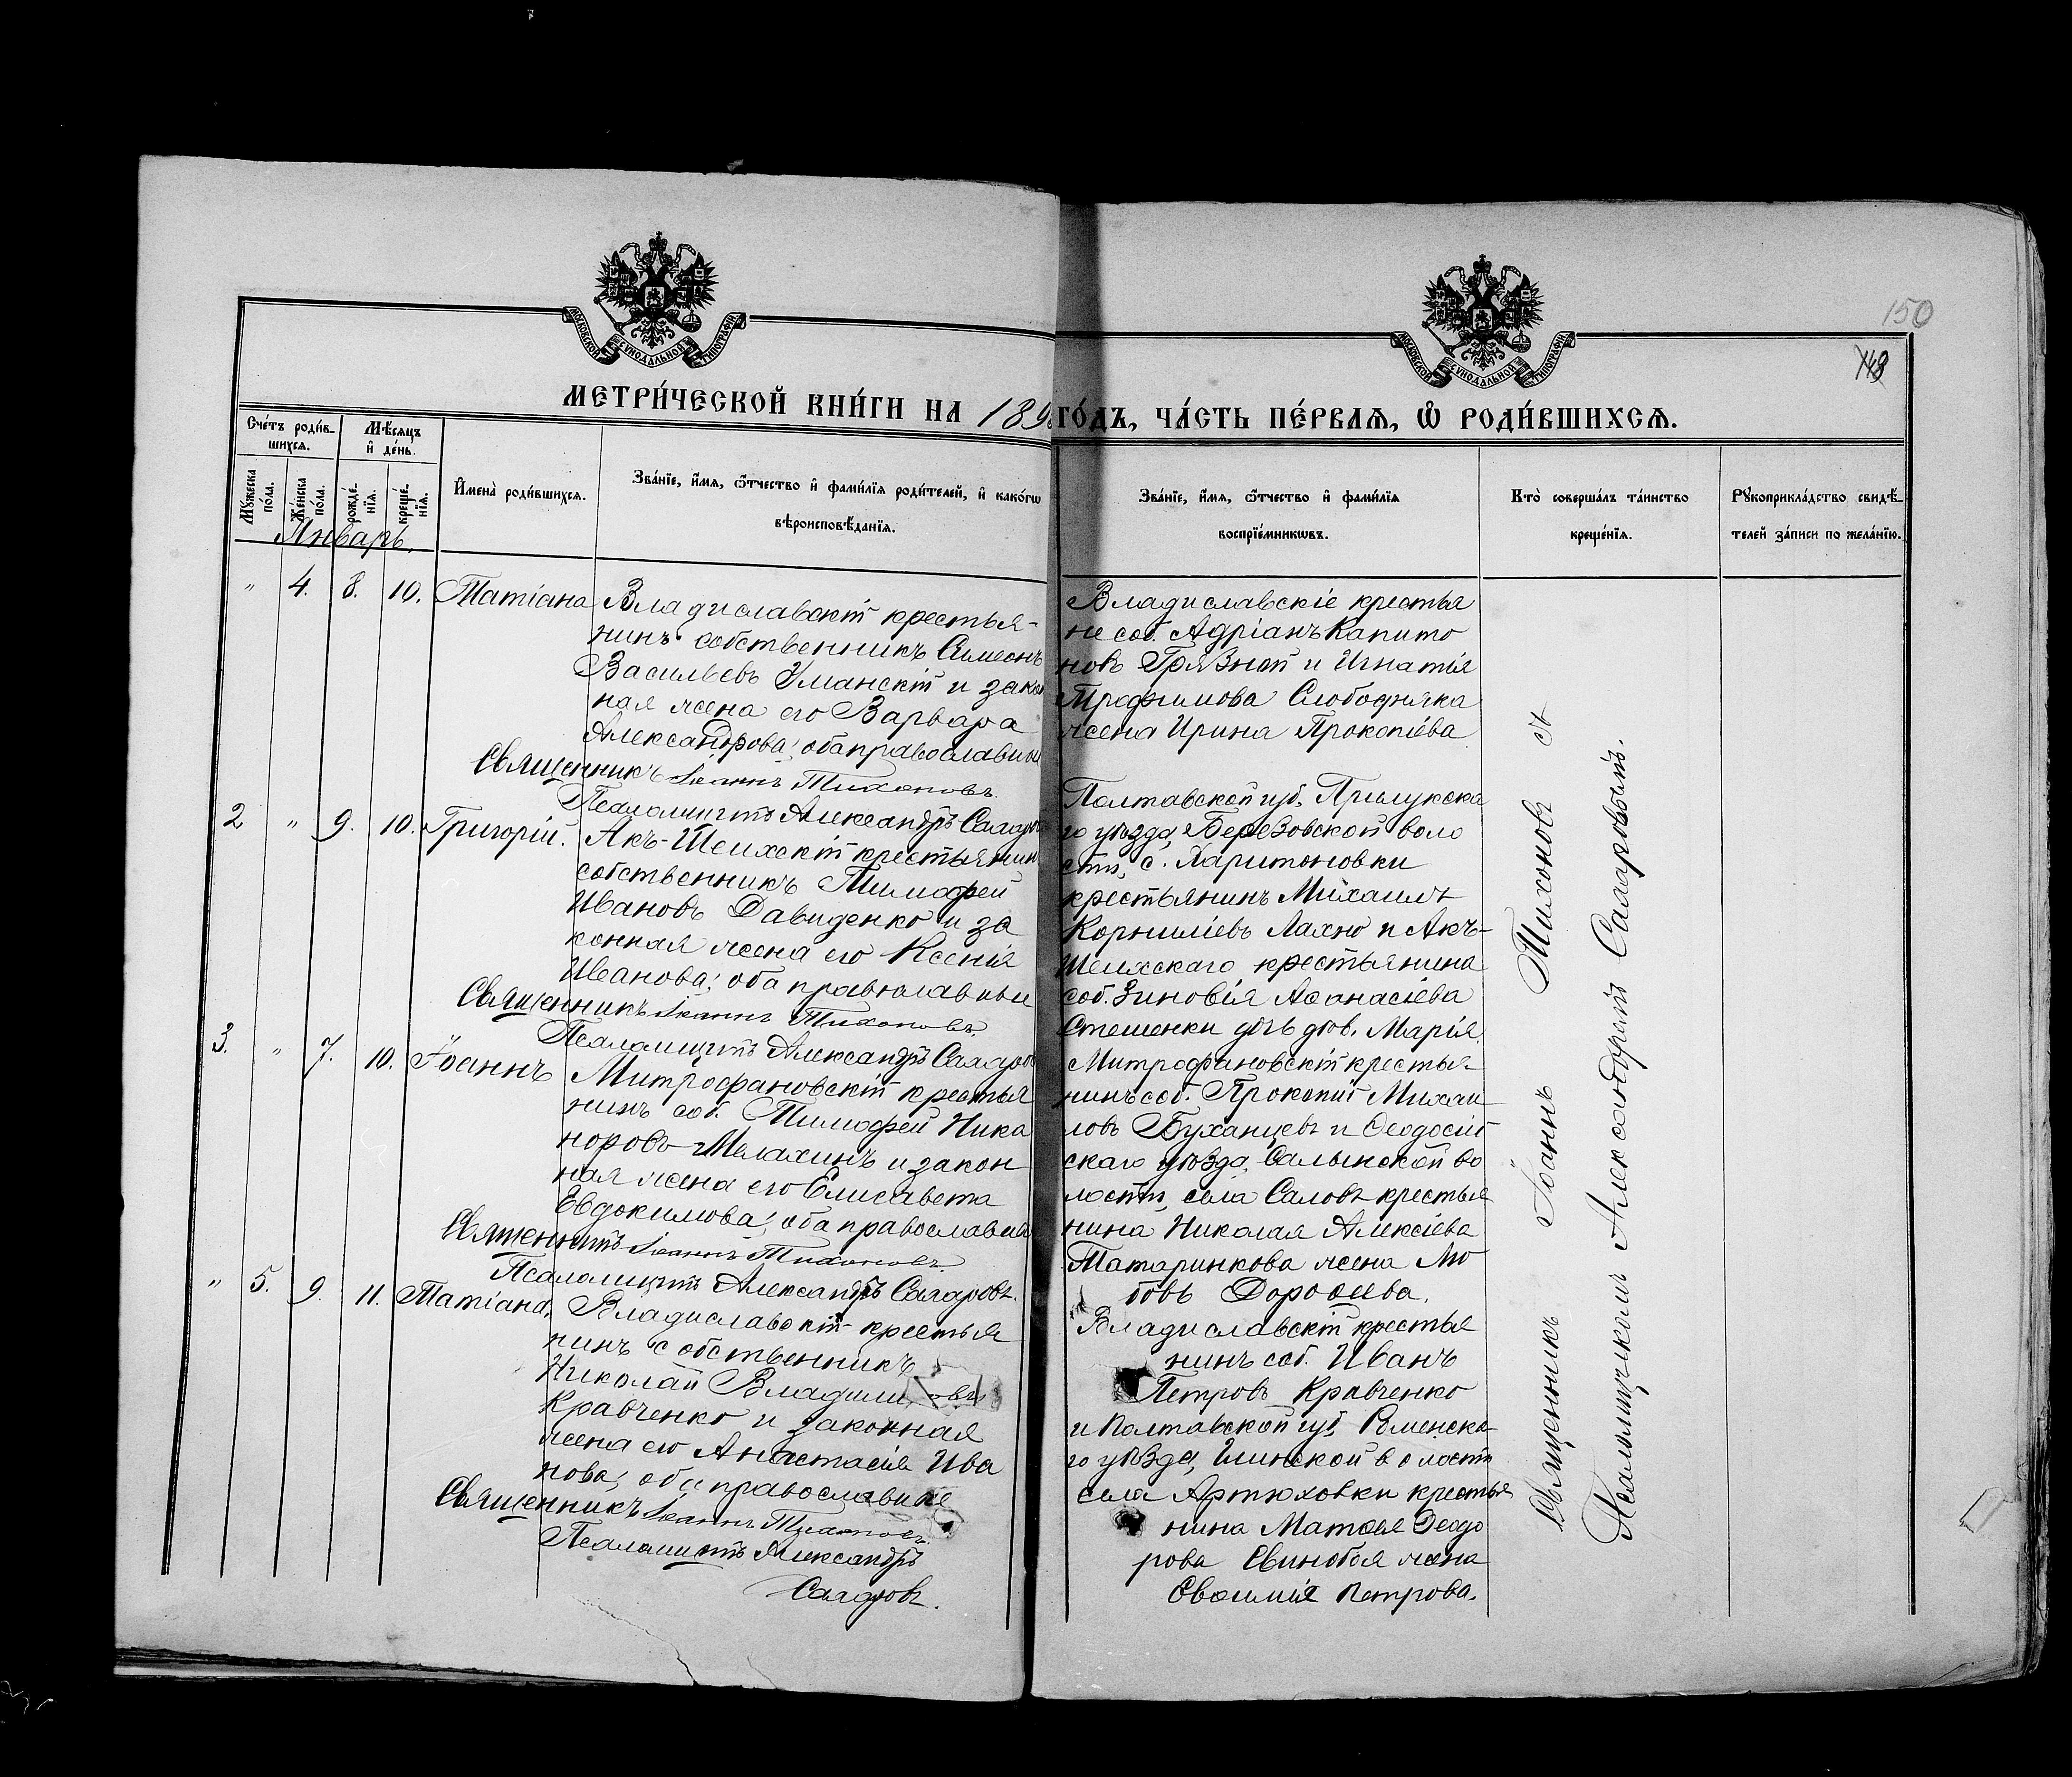 150
148
МОСКОВСКОЙ СѴНОДАЛЬНОЙ ТИПОГРАФІИ
МОСКОВСКОЙ СѴНОДАЛЬНОЙ ТИПОГРАФІИ
МЕТРИ́ЧЕСКОЙ КНИ́ГИ НА 189
ГО́ДЪ, ЧА́СТЬ ПЕ́РВАѦ, Ѡ҆ РОДИ́ВШИХСѦ.
Сче́тъ роди́в-
шихсѧ.
Мꙋ́жеска по́ла.
Же́нска по́ла.
Мѣ́сѧцъ
и҆ де́нь.
рожде́-нїѧ.
креще́-нїѧ.
И҆мена̀ роди́вшихсѧ.
Зва́нїе, и҆́мѧ, ѻ҆́тчество и҆ фами́лїѧ роди́телей, и҆ како́гѡ
вѣроисповѣ́данїѧ.
Зва́нїе, и҆́мѧ, ѻ҆́тчество и҆ фами́лїѧ
воспрїе́мникѡвъ.
Кто̀ соверша́лъ та́инство
креще́нїѧ.
Рꙋкоприкла́дство свидѣ́-
телей за́писи по жела́нїю.
Январь.
" 4. 8. 10. Татіана
Владиславскій крестья-
нинъ собственникъ Симеонъ
Васильевъ Уманскій и закон
ная жена его Варвара
Александрова; оба православные
Священникъ Іоаннъ Тихоновъ.
Псаломщикъ Александръ Сахаров
Владиславскіе крестья
не соб. Адріанъ Капито
новъ Грязной и Игнатія
Трофимова Слободяника
жена Ирина Прокопіева
2 " 9. 10. Григорій.
Акъ-Шеихскій крестьянин
собственникъ Тимофей
Ивановъ Давиденко и за
конная жена его Ксенія
Иванова; оба православные
Священникъ Іоаннъ Тихоновъ.
Псаломщикъ Александръ Сахаров
Полтавской губ. Прилукска
го уѣзда, Березовской воло
сти, с. Харитоновки
крестьянинъ Михаилъ
Корниліевъ Лахно и Акъ-
Шеихскаго крестьянина
соб. Зиновія Аѳанасіева
Стешенки дочь дѣв. Марія.
3. " 7. 10. Іоаннъ
Митрофановскій крестья
нинъ соб. Тимофей Ника
норовъ Мелахинъ и закон
ная жена его Елисавета
Евдокимова; оба православные
Священникъ Іоаннъ Тихоновъ.
Псаломщикъ Александръ Сахаровъ.
Митрофановскій крестья-
нинъ соб. Прокопій Михаи
ловъ Буханцевъ и Ѳеодосій
скаго уѣзда, Салынской во
лости, села Саловъ крестья
нина Николая Алексіева
Татаринкова жена Лю
бовь Дороѳеева.
" 5. 9. 11. Татіана.
Владиславскій крестья
нинъ собственникъ
Николай Владими овъ
Кравченко и законная
жена его Анастасія Ива
нова; оба православные
Священникъ Іоаннъ Тихоновъ.
Псаломщикъ Александръ
Сахаровъ.
Владиславскій крестья
нинъ соб. Иванъ
Петровъ Кравченко
и Полтавской губ. Роменска
го уѣзда, Глинской волости
села Артюховки крестья
нина Матѳея Ѳеодо
рова Свинобоя жена
Евѳимія Петрова.
Священникъ Іоаннъ Тихоновъ съ
Псаломщикомъ Александромъ Сахаровымъ.